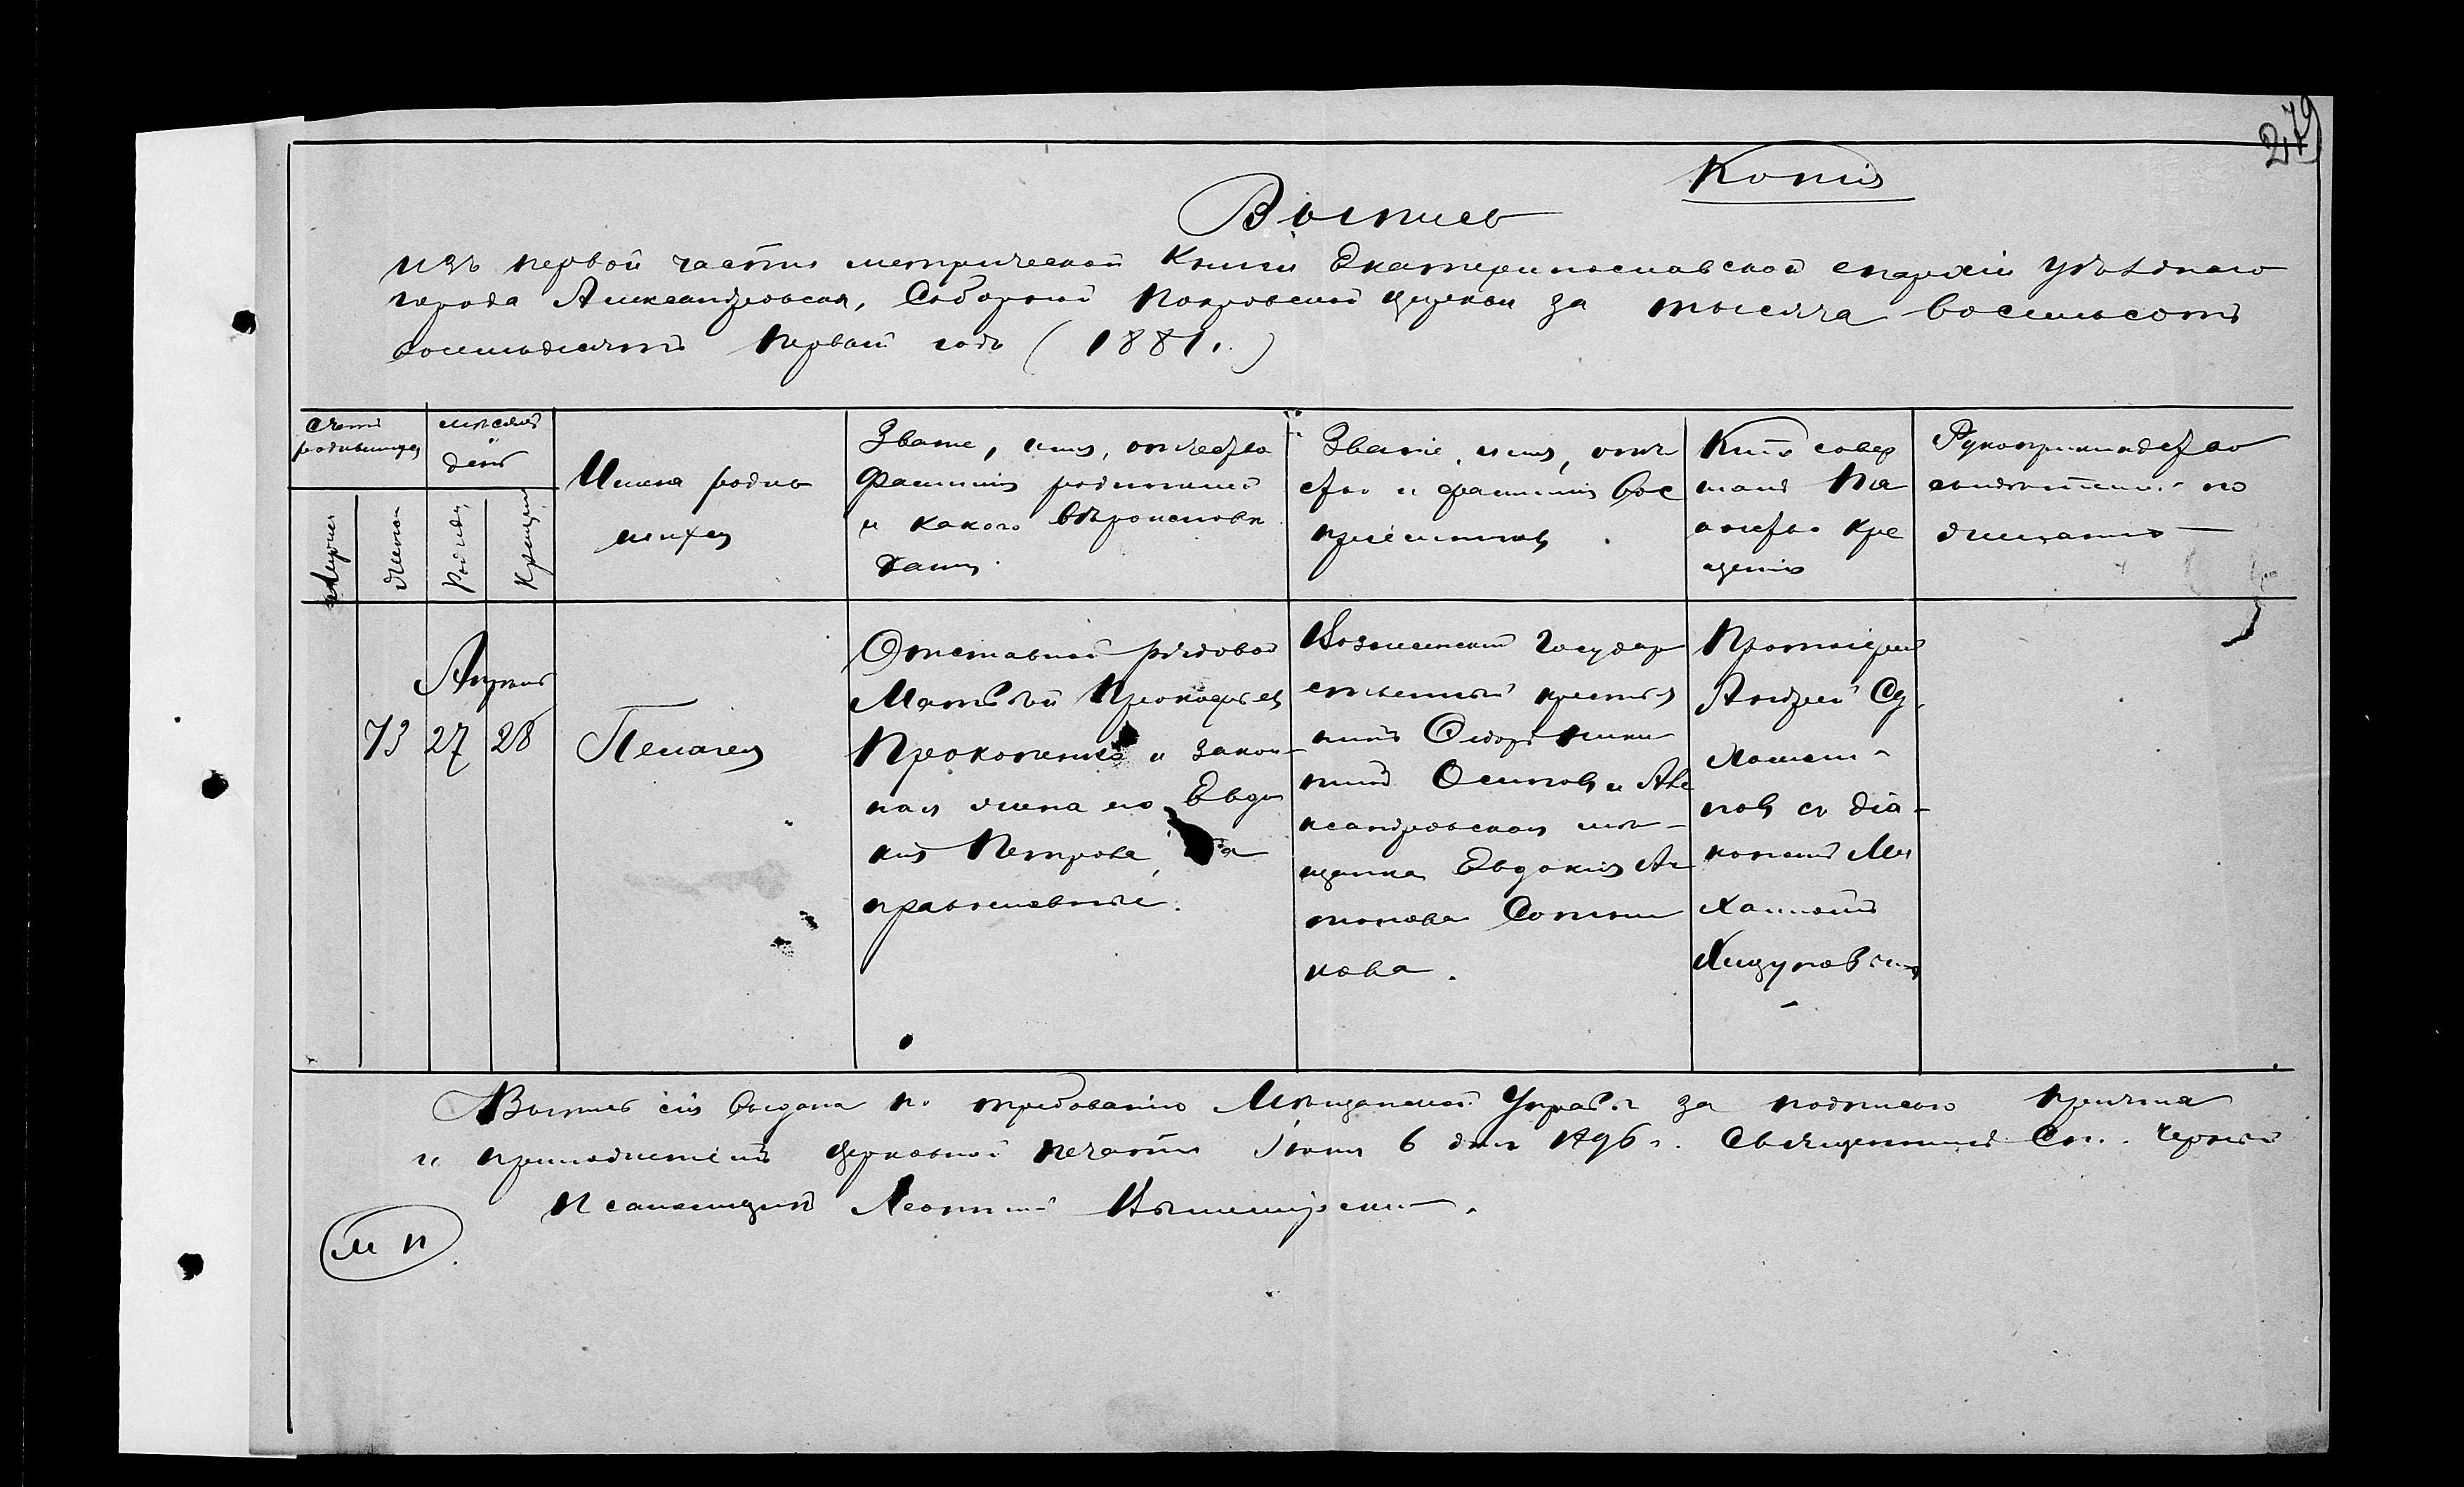 279
Копія
Выпись
изъ первой части метрической книги Екатеринославской епархіи уѣзднаго
города Александровска, Соборной Покровской церкви за тысяча восемьсотъ
восемьдесятъ первый годъ (1881.)
Счетъ родившихся
мѣсяцъ и день
Мужеска
Женска
Рожден.
Крещен.
Имена родив
шихся
Званіе, имя, отчество
фамилія родителей
и какого вѣроисповѣ
данія.
Званіе, имя, отче
ство и фамилія вос
пріемниковъ.
Кто совер
шалъ та
инство кре
щенія
Рукоприкладство
свидѣтелей по
желанію
Апрѣль
73 27 28
Пелагея
Отставной рядовой
Матвѣй Прокофьевъ
Прокопенко и закон-
ная жена его Евдо
кія Петрова, оба
православные.
Вознесенскій государ
ственный крестья
нинъ Ѳедоръ Ники
тинъ Осиповъ и Але
ксандровская мѣ-
щанка Евдокія Ан
тонова Сотни
кова.
Протоіерей
Андрей
съ діа-
кономъ Ми
хаиломъ
Выпись сія выдана по требованію Мѣщанской Управы за подписью причта
и приложеніемъ церковной печати Іюня 6 дня 1896 г. Священникъ Сп. Черный
Псаломщикъ Леонтій
М П.